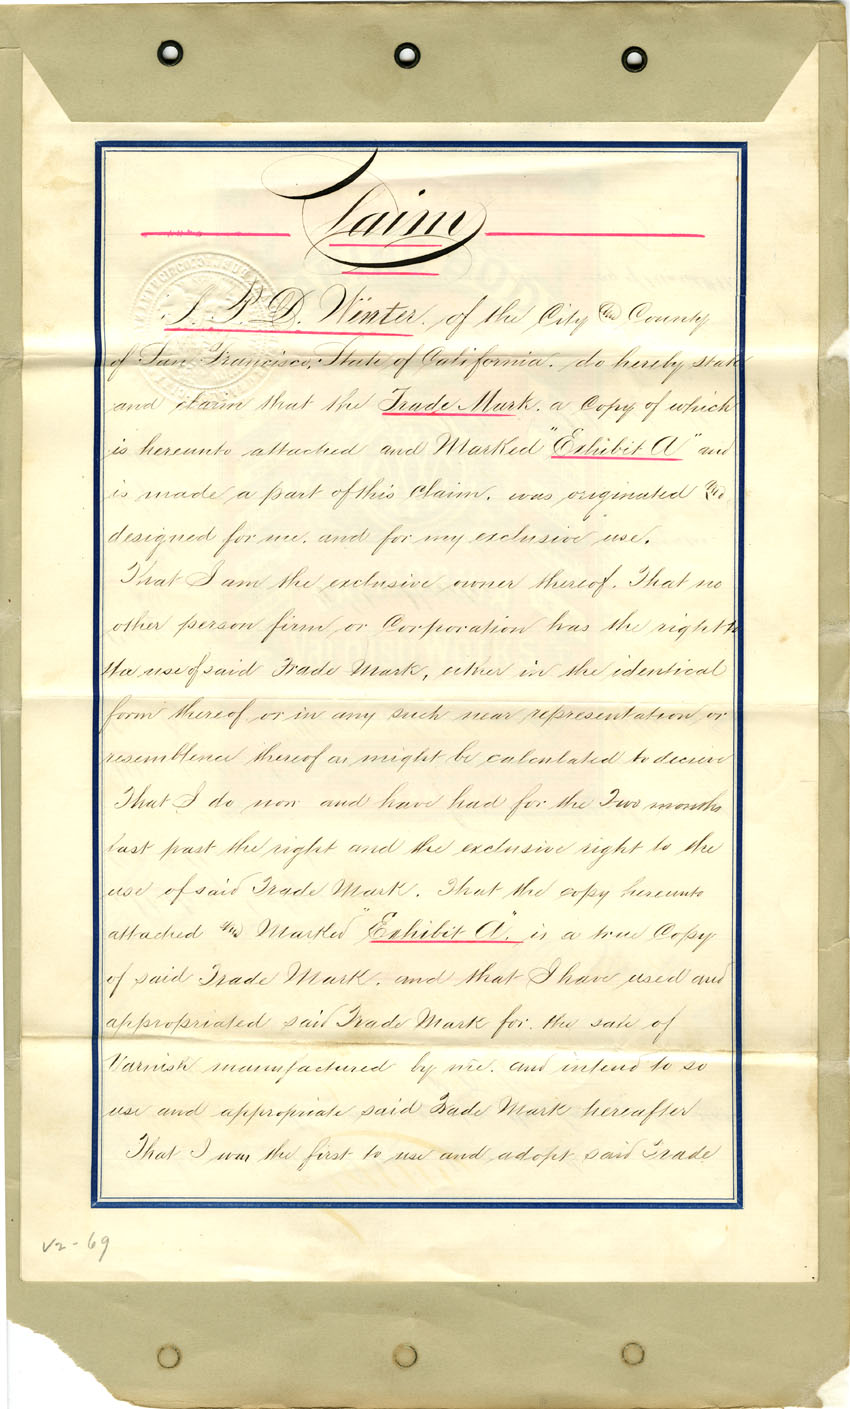 Claim
I, P. D. Winter. of the City and County
of San Francisco, State of California. do hereby state
and claim that the Trade Mark. a Copy of which
is hereunto attached and Marked "Exhibit A" and
is made a part of this claim. was originated and
designed for me. and for my exclusive use.
That I am the exclusive owner thereof. That no
other person firm or Corporation has the right to
the use of said Trade Mark, either in the identical
form thereof or in any such near representation or
resemblence thereof as might be calculated to decieve
That I do now and have had for the Two months
last past the right and the exclusive right to the
use of said Trade Mark. That the copy hereunto
attached and Marked "Exhibit A". is a true Copy
of said Trade Mark. and that I have used and
appropriated said Trade Mark for the sale of
Varnish manufactured by me. and intend to so
use and appropriate said Trade Mark hereafter
That I was the first to use and adopt said Trade
V2-69